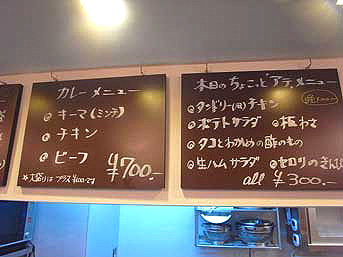 カレーメニュー
キーマ(ミンチ)
チキン
ビーフ
¥700.-
※大盛りはプラス¥100です
本日のちょこっとアテ、メニュー
タンドリーチキン
ポテトサラダ
板わさ
タコとわかめの酢のもの
生ハムサラダ
セロリのきんぴ
all ¥300.-